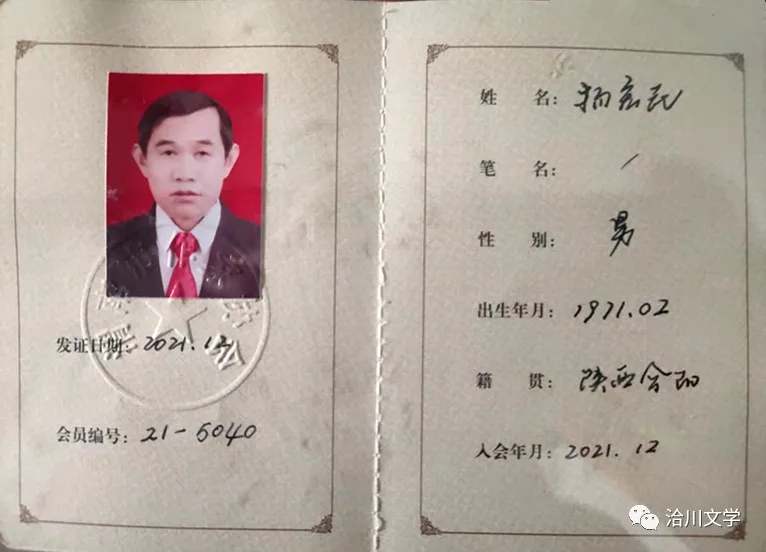 发证日期：2021.12
会员编号：21-5040
姓　名：杨宏民
笔　名：/
性　别：男
出生年月：1971.02
籍　贯：陕西合阳
入会年月：2021.12
洽川文学